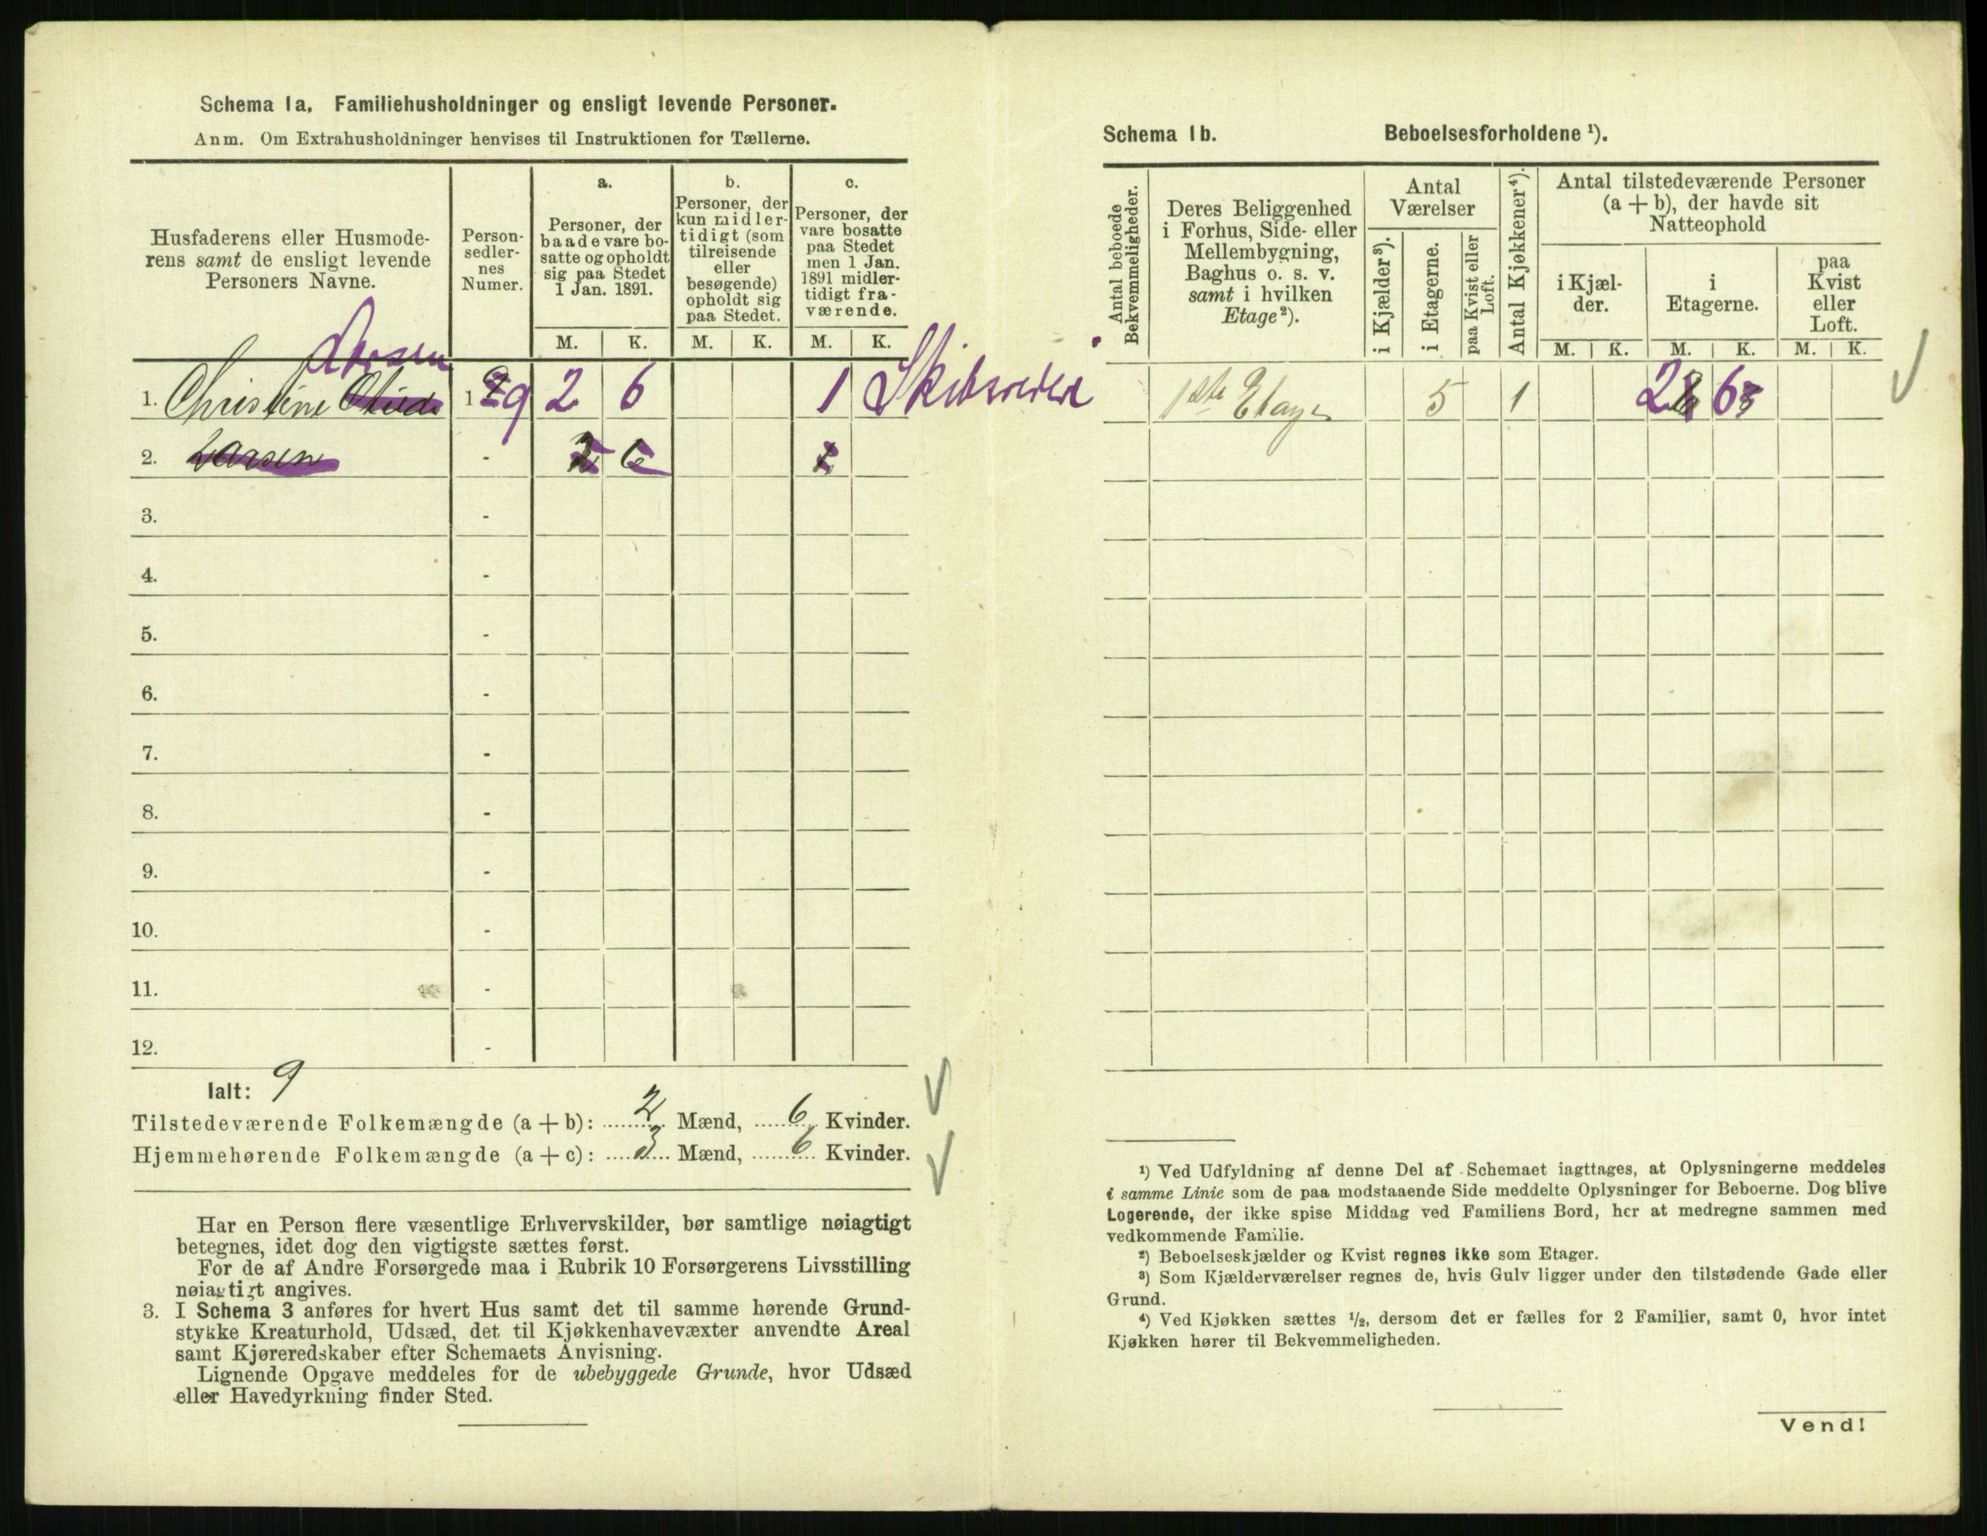 Schema 1a. Familiehusholdninger og ensligt levende Personer.
Anm. Om Extrahusholdninger henvises til Instruktionen for Tællerne.
Husfaderens eller Husmode-
rens samt de ensligt levende
Personers Navne.
Person-
sedler-
nes
Numer.
a.
Personer, der
baade vare bo-
satte og opholdt
sig paa Stedet
1 Jan. 1891.
M. K.
b.
Personer, der
kun midler-
tidigt (som
tilreisende
eller
besøgende)
opholdt sig
paa Stedet.
M. K.
c.
Personer, der
vare bosatte
paa Stedet
men 1 Jan.
1891 midler-
tidigt fra-
værende.
M. K.
Larsen
1. Christine 1 9 2 6 1
2. Larsen - 6
3. -
4. -
5. -
6. -
7. -
8. -
9. -
10. -
11. -
12. -
Ialt: 9
Tilstedeværende Folkemængde (a + b): 2 Mænd, 6 Kvinder.
Hjemmehørende Folkemængde (a + c): 3 Mænd, 6 Kvinder.
Har en Person flere væsentlige Erhvervskilder, bør samtlige nøiagtigt
betegnes, idet dog den vigtigste sættes først.
For de af Andre Forsørgede maa i Rubrik 10 Forsørgerens Livsstilling
nøiagtigt angives.
3. I Schema 3 anføres for hvert Hus samt det til samme hørende Grund-
stykke Kreaturhold, Udsæd, det til Kjøkkenhavevæxter anvendte Areal
samt Kjøreredskaber efter Schemaets Anvisning.
Lignende Opgave meddeles for de ubebyggede Grunde, hvor Udsæd
eller Havedyrkning finder Sted.
Schema 1b. Beboelsesforholdene ¹).
Antal beboede
Bekvemmeligheder.
Deres Beliggenhed
i Forhus, Side- eller
Mellembygning,
Baghus o. s. v.
samt i hvilken
Etage²).
Antal
Værelser
i Kjælder³).
i Etagerne.
paa Kvist eller
Loft.
Antal Kjøkkener⁴).
Antal tilstedeværende Personer
(a + b), der havde sit
Natteophold
i Kjæl-
der.
i
Etagerne.
paa
Kvist
eller
Loft.
M. K. M. K. M. K.
1ste Etage 5 1 2 6
¹) Ved Udfyldning af denne Del af Schemaet iagttages, at Oplysningerne meddeles
i samme Linie som de paa modstaaende Side meddelte Oplysninger for Beboerne. Dog blive
Logerende, der ikke spise Middag ved Familiens Bord, her at medregne sammen med
vedkommende Familie.
²) Beboelseskjælder og Kvist regnes ikke som Etager.
³) Som Kjælderværelser regnes de, hvis Gulv ligger under den tilstødende Gade eller
Grund.
⁴) Ved Kjøkken sættes ½, dersom det er fælles for 2 Familier, samt 0, hvor intet
Kjøkken hører til Bekvemmeligheden.
Vend!